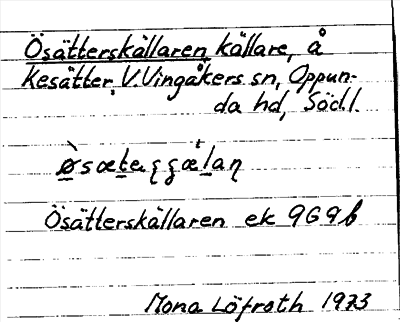 Ösätterskällaren, källare, å
Kesätter, V. Vingåkers sn, Oppun-
da hd, Södl.
Ösätterskällaren ek 9G9b
Mona Löfroth 1973